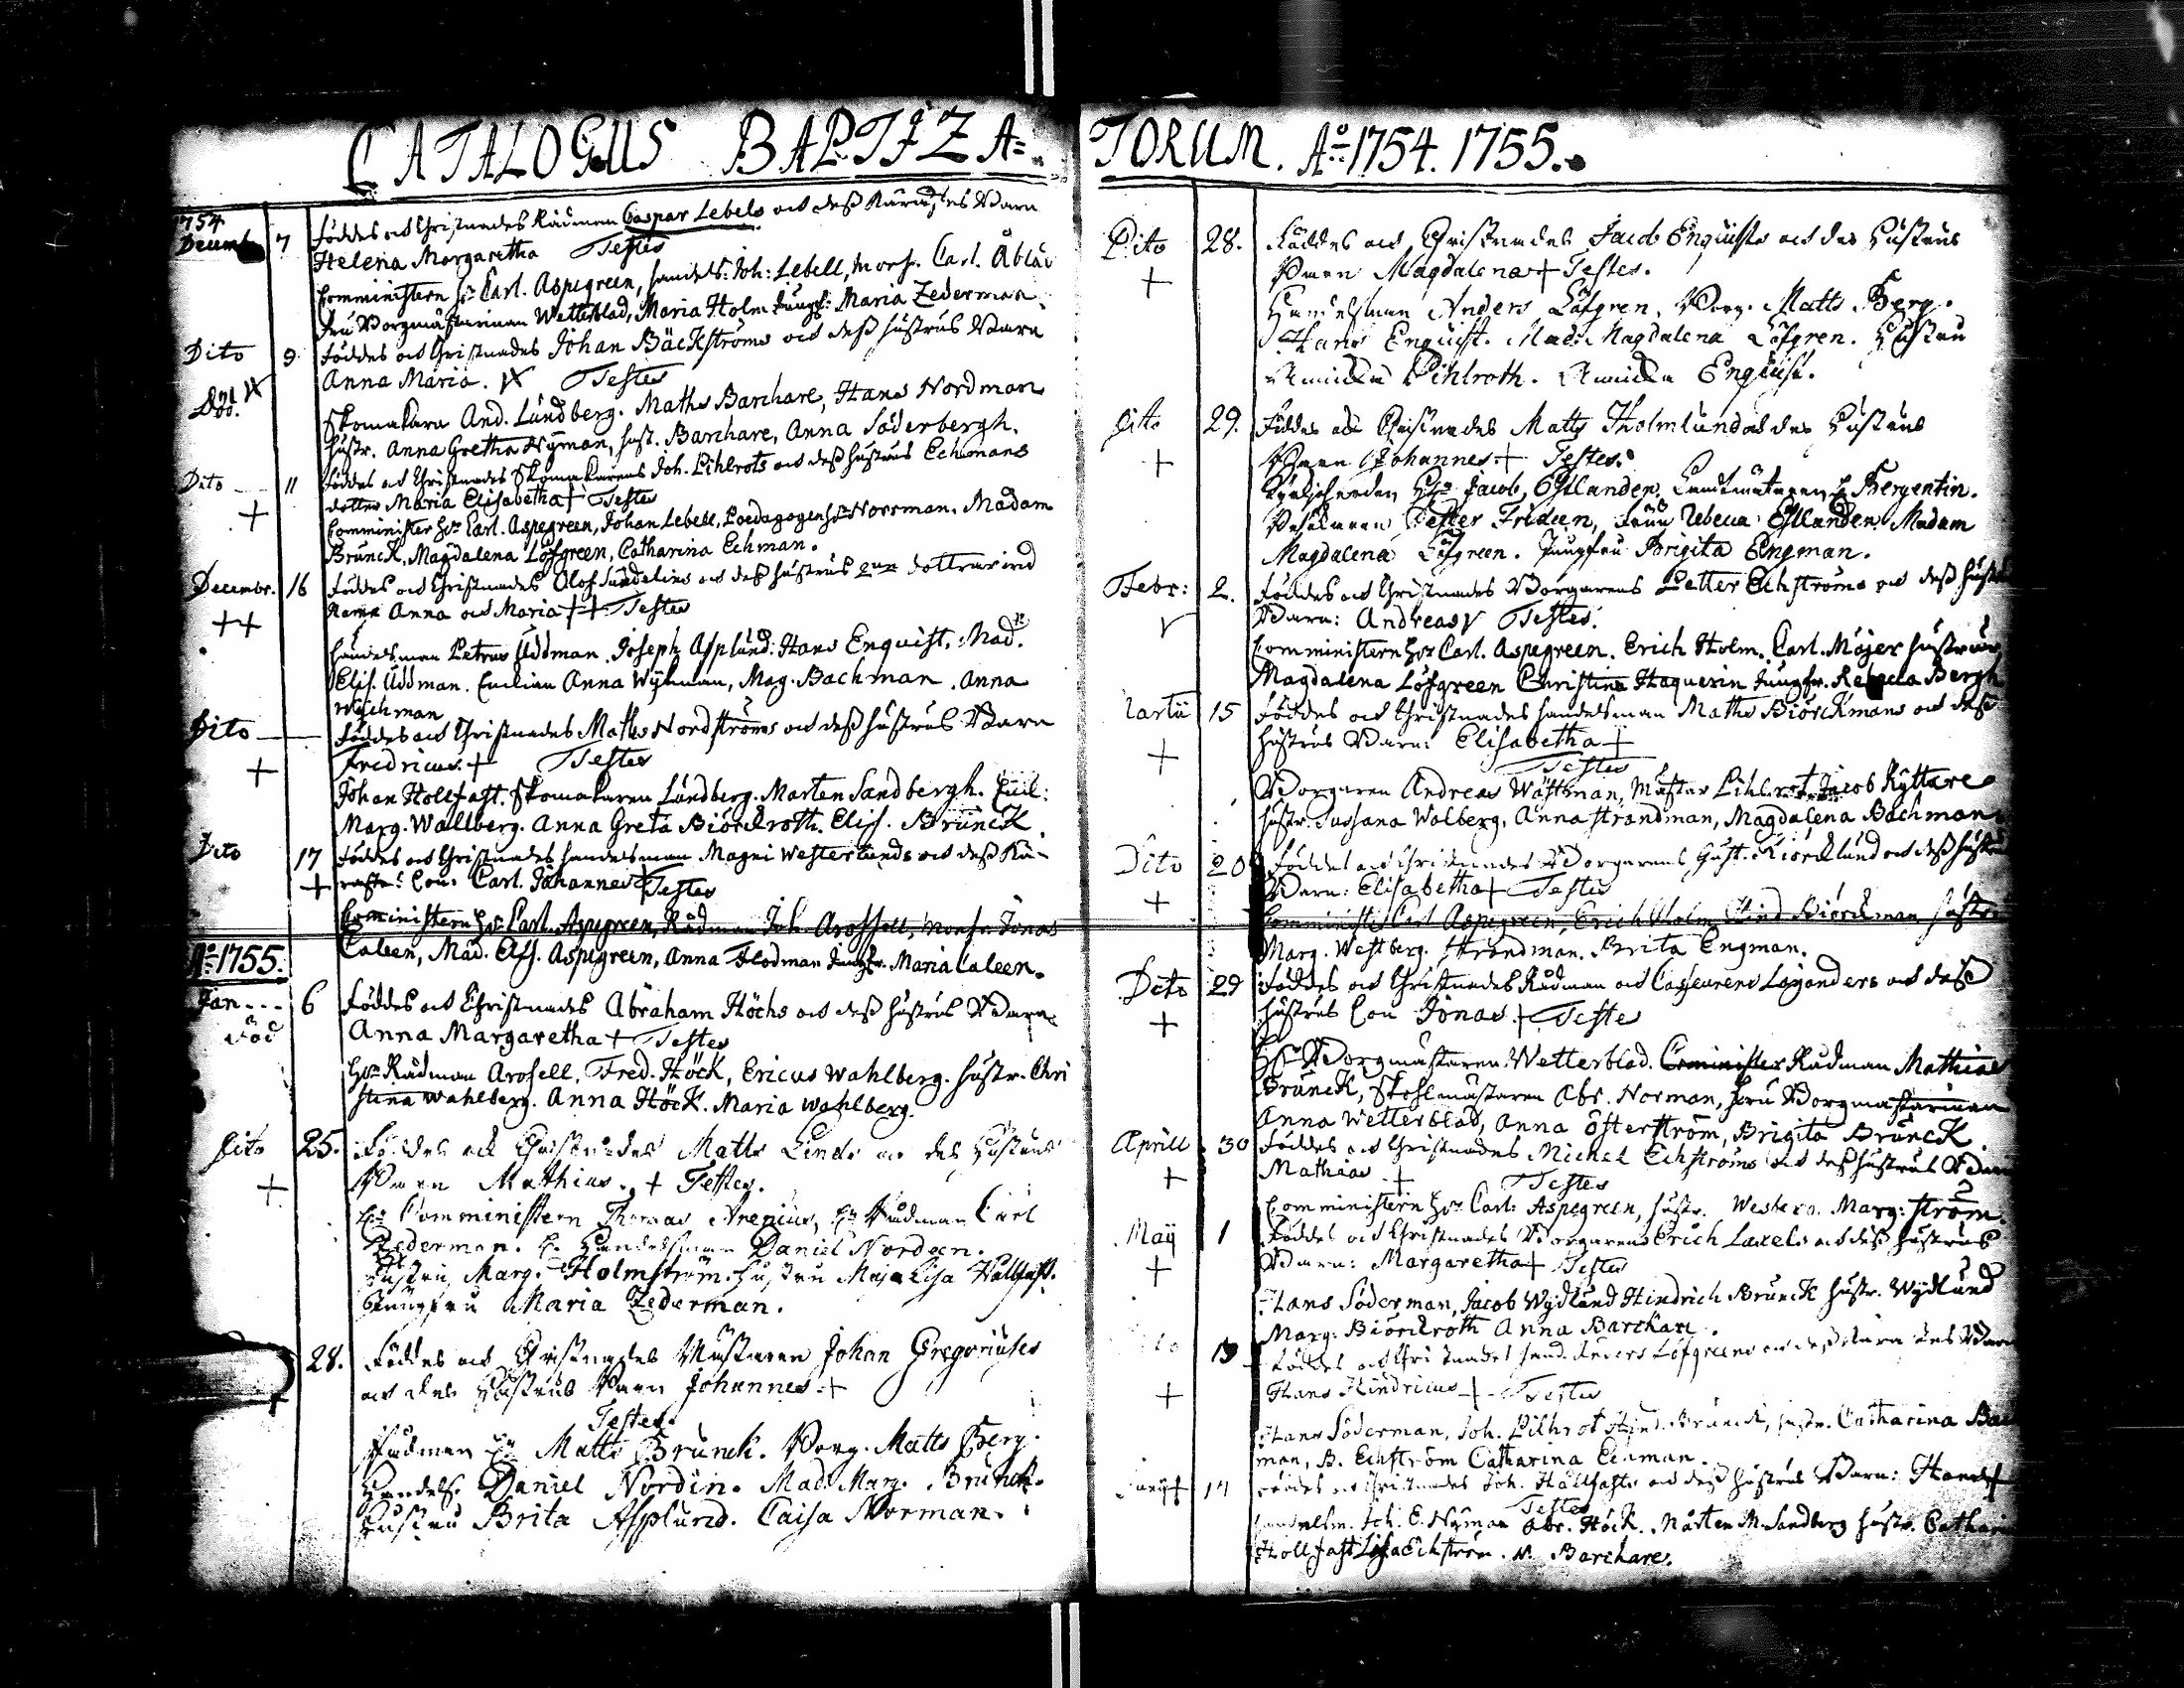 CATALOGUS BAPTIZA=
1754
Decemb 7 Föddes och Christnades Rådman Caspar Lebels och dess Käraстes Barn
Helena Margaretha Testes
Comministern Hr Carl Aspegreen, handels: Joh: Lebell, Mons. Carl
Fru Borgmästarinnan Wetterblad, Maria Holm Jungf: Maria Zederman
Dito 9 Föddes och Christnades Johan Bäckströms och dess hustrus Barn
Anna Maria. Testes
Död. Skomakare And. Lundberg. Maths Barchare, Hans Nordman
hustr. Anna Gretha Nyman, hust. Barchare, Anna Söderbergh.
Dito 11 Föddes och Christnades Skomakarens Joh. Pihlrots och dess hustrus Echmans
+ dotter Maria Elisabetha + Testes
Comminister Hr Carl Aspegreen, Johan Lebell, Paedagogen Hr Norrman. Madam
Brunck, Magdalena Löfgreen, Catharina Echman.
Decembr. 16 Föddes och Christnades Olof Sundelins och dess hustrus 2ne dottrar
++ Anna och Maria ++ Testes
handelsman Petrus Uddman. Joseph Asplund. Hans Enquist, Mad.
Elis. Uddman. Anna Wyhman, Mag. Bachman. Anna
Dito Föddes och Christnades Maths Nordströms och dess hustrus Barn
+ Fredricus + Testes
Johan Hollfast. Skomakaren Lundberg. Marten Sandbergh.
Marg. Wallberg. Anna Greta Biörckroth. Elis. Brunck.
Dito 17 Föddes och Christnades handelsman Magni Westerlunds och dess Kä-
+ Son Carl Johannes + Testes
Comministern Hr Carl Aspegreen, Rådman Joh. Arosell, Mons. Jonas
Caleen, Mad. Elis. Aspegreen, Anna Flodman Jungfr. Maria Caleen.
Ao 1755.
Jan 6 Föddes och Christnades Abraham Höchs och dess hustrus Barn
Död Anna Margaretha + Testes
Hr Rådman Arosell, Fred. Höck, Ericus Wahlberg. hustr. Chri
stina Wahlberg. Anna Höck. Maria Wahlberg.
Dito 25. Föddes och Christnades Matts Linds och des Hustrus
+ Barn Mathias. + Testes.
Hr Comministern Thomas Arenius, Hr Rådman Carl
Zederman. Hr Handelsman Daniel Nordeen.
Hustru Marg. Holmström. Hustru Maja Lisa Hallfast.
Jungfru Maria Zederman.
28. Föddes och Christnades Mästaren Johan Gregoriuses
+ och des Hustrus Barn Johannes +
Testes.
Rådman Hr Matts Brunck. Borg. Matts Berg.
Handels. Daniel Nordin. Mad. Marg. Brunck.
Hustru Brita Asplund. Caisa Norman.
TORUM. Ao 1754. 1755.
Dito 28. Föddes och Christnades Jacob Enquists och des Hustrus
+ Barn Magdalena + Testes.
Handelsman Anders Löfgren, Borg. Matts Berg.
Hans Enquist. Mad: Magdalena Löfgren. Hustru
Annicka Pihlroth. Annicka Enquist.
Dito 29. Föddes och Christnades Matts Holmlunds och des Hustrus
+ Barn Johannes + Testes.
Hr Jacob Estlander, Landtmätaren Hr Bergentin.
Petter Frideen, Fru Rebecca Estlander, Madam
Magdalena Löfgreen. Jungfru Brigita Engman.
Febr: 2. Föddes och Christnades Borgarens Petter Echströms och dess hust
Barn: Andreas Testes.
Comministern Hr Carl Aspegreen. Erich Holm. Carl Majer hustrur
Magdalena Löfgreen Christina Haquerin Jungfr. Rebecca Bergh
artii 15 Föddes och Christnades handelsman Maths Biörckmans och dess
+ hustrus Barn: Elisabetha +
Testes
Borgaren Andreas Wästman, Mästar Pihlrot Jacob Ryttare
hustr. Sussana Walberg, Anna Strandman, Magdalena Bachman
Dito 20 Föddes och Christnades Borgarens Gust. Biörcklund och dess hustru
+ Barn: Elisabetha + Testes
Comminister Carl Aspegreen, Erich Holm, Hind Biörckman hustr
Marg. Westberg. Strandman. Brita Engman.
Dito 29 Föddes och Christnades Rådman och Casseurens Lojanders och dess
+ hustrus Son Jonas + Testes
Hr Borgmästaren Wetterblad. Comminister Rådman Mathias
Brunck, Skohlmästaren Abr. Norman, Fru Borgmästarinnan
Anna Wetterblad, Anna Österström, Brigita Brunck.
Aprill 30 Föddes och Christnades Michel Echströms och dess hustrus Barn
+ Mathias + Testes
Comministern Hr Carl Aspegreen, hustr. Marg: ström.
Maÿ 1 Föddes och Christnades Borgarens Erich Laxels och dess hustrus
+ Barn: Margaretha + Testes
Hans Söderman, Jacob Wydlund Hindrich Brunck hustr. Wydlund
Marg: Biörckroth Anna Barckare.
13 Föddes och Christnades hand. Anders Löfgreens och dess Barn
+ Hans Hindricus + Testes
Hans Söderman, Joh. Pilhrot Hind. Brunck, hustr. Catharina Bac
man, B. Echström Catharina Echman.
17 Föddes och Christnades Joh. Hållfasts och dess hustrus Barn: Hans +
Testes
handelsm. Joh. E. Nyman Abr. Höck. Mårten M. Sandberg hustr. Cathari
Hollfast Lisa Echström. Barchare.